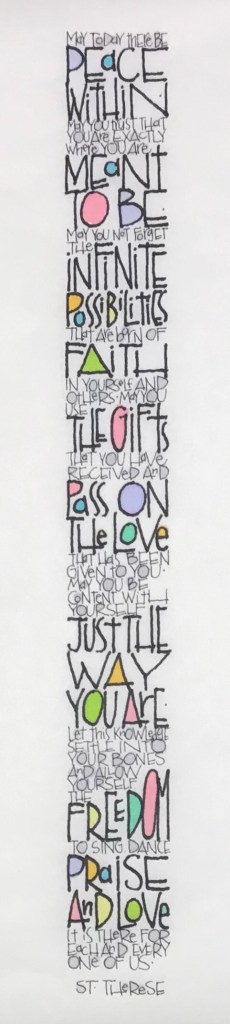 May today there be
Peace
within
May you trust that
you are exactly
where you are
meant
to be.
May you not forget
the
infinite
possibilities
that are born of
faith
in yourself and
others. May you
use
the gifts
that you have
received and
pass on
the love
that has been
given to you
May you be
content with
yourself
just the
way
you are.
Let this knowledge
settle into
your bones
and allow
yourself
the
freedom
to sing, dance
praise
and love
It is there for
each and every
one of us.
St. Therese